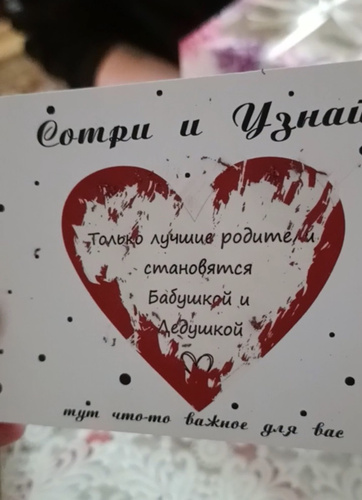 Сотри и Узнай
Только лучшие родители
становятся
Бабушкой и
Дедушкой
тут что-то важное для вас